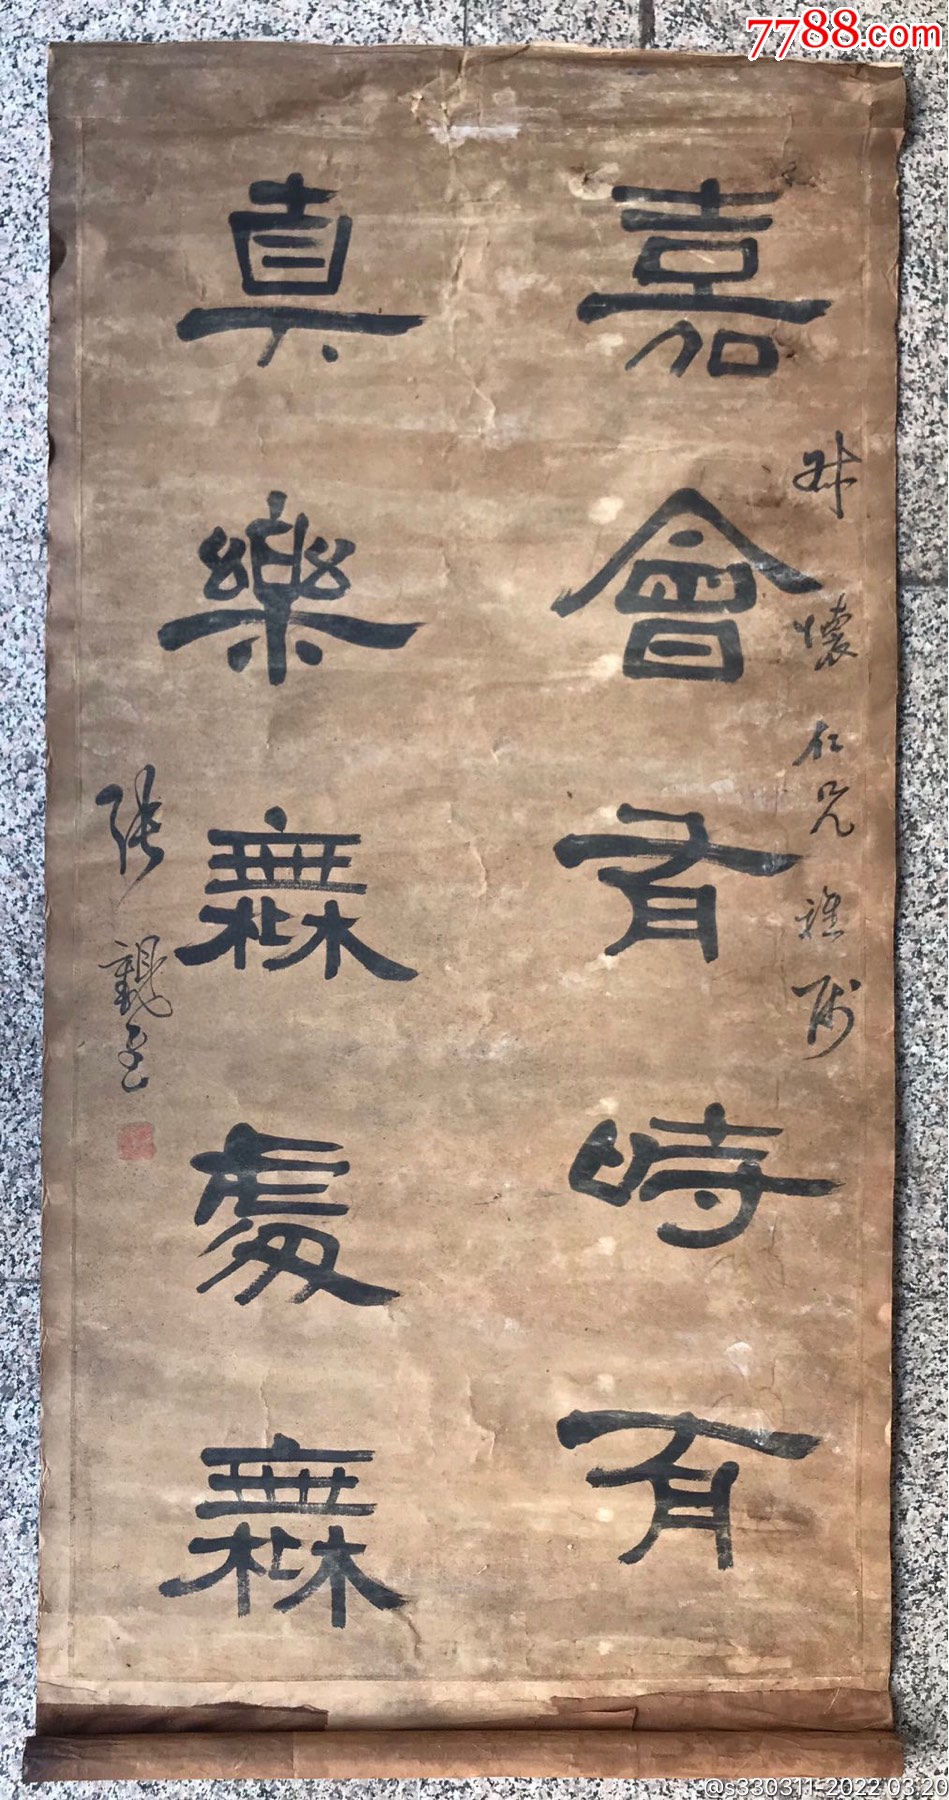 7788.com
嘉會有時有
叔懷仁兄雅屬
真樂無處無
張
@s330311-2022.03.20